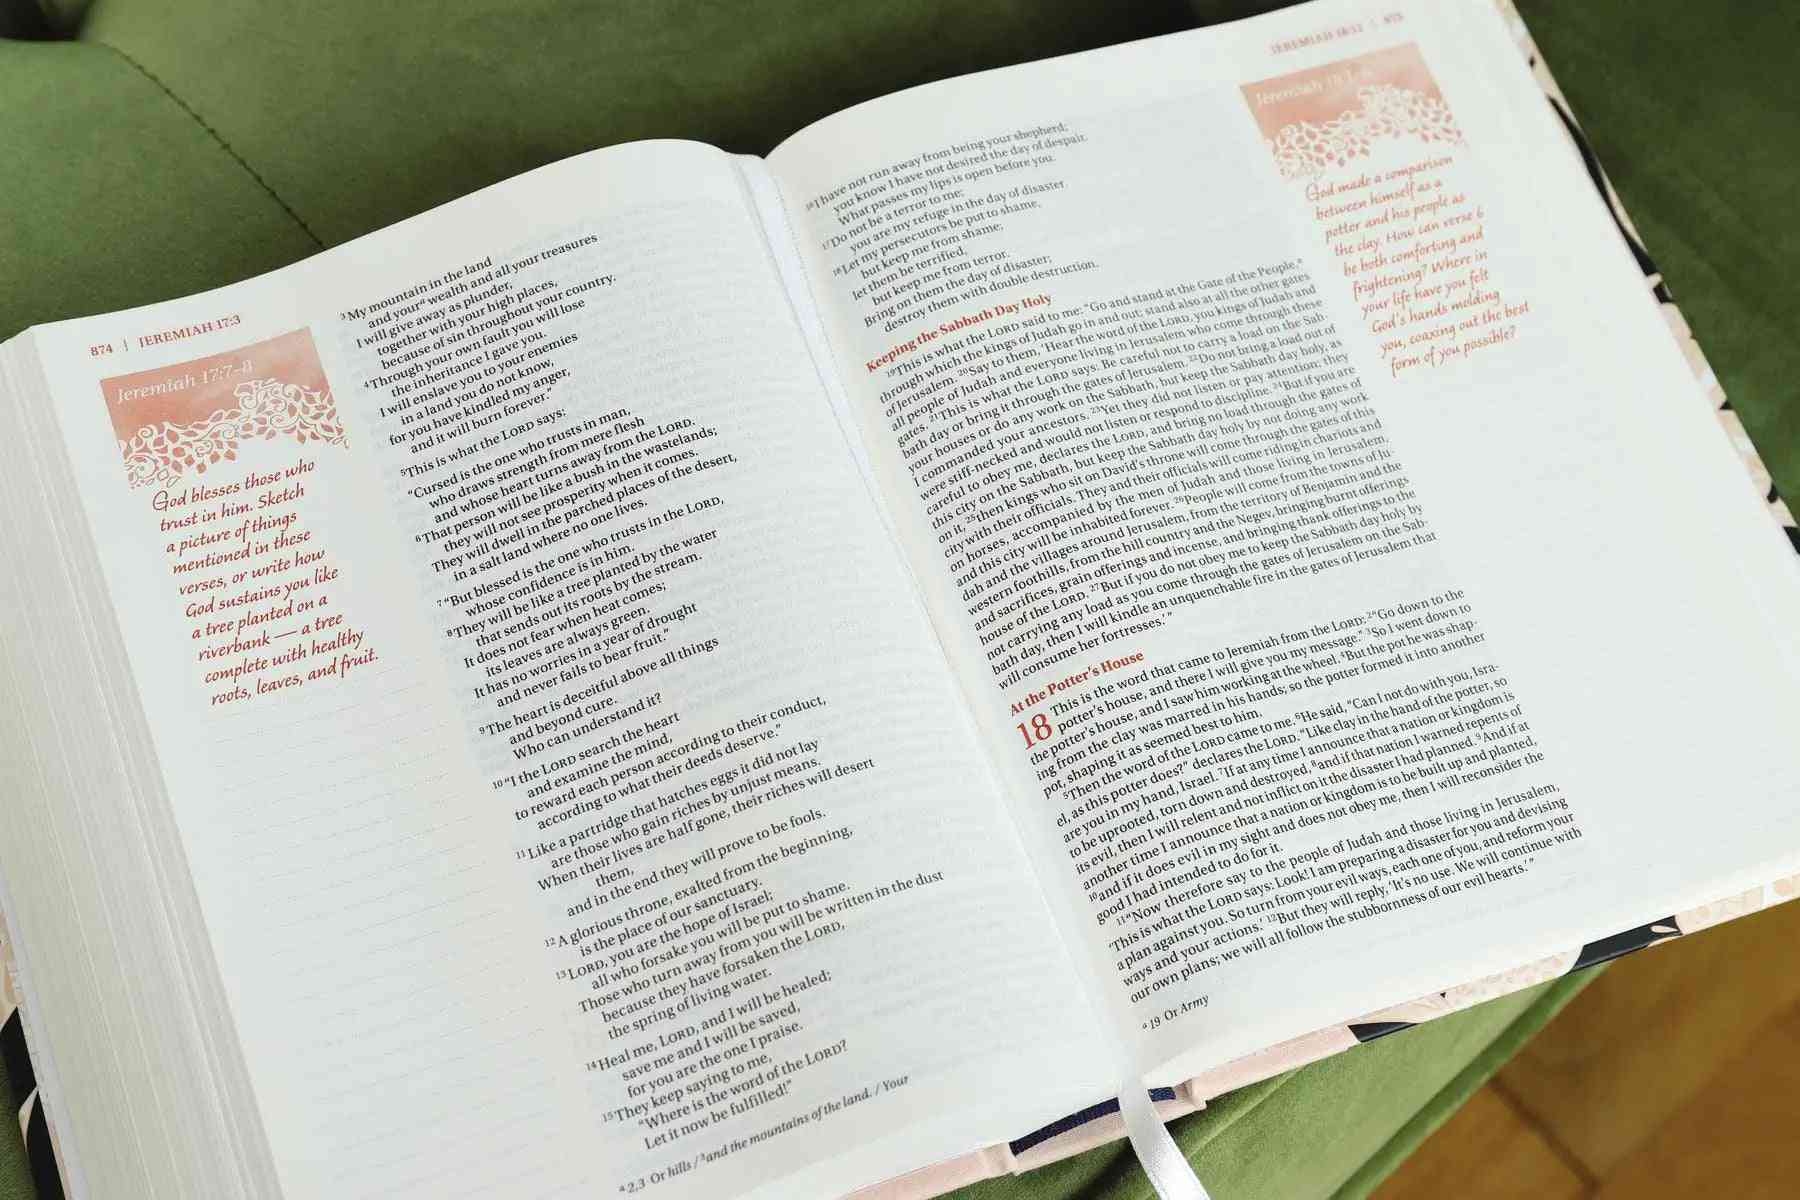 874 | JEREMIAH 17:3
Jeremiah 17:7–8
God blesses those who
trust in him. Sketch
a picture of things
mentioned in these
verses, or write how
God sustains you like
a tree planted on a
riverbank — a tree
complete with healthy
roots, leaves, and fruit.
3 My mountain in the land
and your a wealth and all your treasures
I will give away as plunder,
together with your high places,
because of sin throughout your country.
4 Through your own fault you will lose
the inheritance I gave you.
I will enslave you to your enemies
in a land you do not know,
for you have kindled my anger,
and it will burn forever.”
5 This is what the LORD says:
“Cursed is the one who trusts in man,
who draws strength from mere flesh
and whose heart turns away from the LORD.
6 That person will be like a bush in the wastelands;
they will not see prosperity when it comes.
They will dwell in the parched places of the desert,
in a salt land where no one lives.
7 “But blessed is the one who trusts in the LORD,
whose confidence is in him.
8 They will be like a tree planted by the water
that sends out its roots by the stream.
It does not fear when heat comes;
its leaves are always green.
It has no worries in a year of drought
and never fails to bear fruit.”
9 The heart is deceitful above all things
and beyond cure.
Who can understand it?
10 “I the LORD search the heart
and examine the mind,
to reward each person according to their conduct,
according to what their deeds deserve.”
11 Like a partridge that hatches eggs it did not lay
are those who gain riches by unjust means.
When their lives are half gone, their riches will desert
them,
and in the end they will prove to be fools.
12 A glorious throne, exalted from the beginning,
is the place of our sanctuary.
13 LORD, you are the hope of Israel;
all who forsake you will be put to shame.
Those who turn away from you will be written in the dust
because they have forsaken the LORD,
the spring of living water.
14 Heal me, LORD, and I will be healed;
save me and I will be saved,
for you are the one I praise.
15 They keep saying to me,
“Where is the word of the LORD?
Let it now be fulfilled!”
a 2,3 Or hills / 3 and the mountains of the land. / Your
JEREMIAH 18:12 | 875
Jeremiah 18:1–6
God made a comparison
between himself as a
potter and his people as
the clay. How can verse 6
be both comforting and
frightening? Where in
your life have you felt
God’s hands molding
you, coaxing out the best
form of you possible?
16 I have not run away from being your shepherd;
you know I have not desired the day of despair.
What passes my lips is open before you.
17 Do not be a terror to me;
you are my refuge in the day of disaster.
18 Let my persecutors be put to shame,
but keep me from shame;
let them be terrified,
but keep me from terror.
Bring on them the day of disaster;
destroy them with double destruction.
Keeping the Sabbath Day Holy
19 This is what the LORD said to me: “Go and stand at the Gate of the People, a
through which the kings of Judah go in and out; stand also at all the other gates
of Jerusalem. 20 Say to them, ‘Hear the word of the LORD, you kings of Judah and
all people of Judah and everyone living in Jerusalem who come through these
gates. 21 This is what the LORD says: Be careful not to carry a load on the Sab-
bath day or bring it through the gates of Jerusalem. 22 Do not bring a load out of
your houses or do any work on the Sabbath, but keep the Sabbath day holy, as
I commanded your ancestors. 23 Yet they did not listen or pay attention; they
were stiff-necked and would not listen or respond to discipline. 24 But if you are
careful to obey me, declares the LORD, and bring no load through the gates of
this city on the Sabbath, but keep the Sabbath day holy by not doing any work
on it, 25 then kings who sit on David’s throne will come through the gates of this
city with their officials. They and their officials will come riding in chariots and
on horses, accompanied by the men of Judah and those living in Jerusalem,
and this city will be inhabited forever. 26 People will come from the towns of Ju-
dah and the villages around Jerusalem, from the territory of Benjamin and the
western foothills, from the hill country and the Negev, bringing burnt offerings
and sacrifices, grain offerings and incense, and bringing thank offerings to the
house of the LORD. 27 But if you do not obey me to keep the Sabbath day holy by
not carrying any load as you come through the gates of Jerusalem on the Sab-
bath day, then I will kindle an unquenchable fire in the gates of Jerusalem that
will consume her fortresses.’ ”
At the Potter’s House
18 This is the word that came to Jeremiah from the LORD: 2 “Go down to the
potter’s house, and there I will give you my message.” 3 So I went down to
the potter’s house, and I saw him working at the wheel. 4 But the pot he was shap-
ing from the clay was marred in his hands; so the potter formed it into another
pot, shaping it as seemed best to him.
5 Then the word of the LORD came to me. 6 He said, “Can I not do with you, Isra-
el, as this potter does?” declares the LORD. “Like clay in the hand of the potter, so
are you in my hand, Israel. 7 If at any time I announce that a nation or kingdom is
to be uprooted, torn down and destroyed, 8 and if that nation I warned repents of
its evil, then I will relent and not inflict on it the disaster I had planned. 9 And if at
another time I announce that a nation or kingdom is to be built up and planted,
10 and if it does evil in my sight and does not obey me, then I will reconsider the
good I had intended to do for it.
11 “Now therefore say to the people of Judah and those living in Jerusalem,
‘This is what the LORD says: Look! I am preparing a disaster for you and devising
a plan against you. So turn from your evil ways, each one of you, and reform your
ways and your actions.’ 12 But they will reply, ‘It’s no use. We will continue with
our own plans; we will all follow the stubbornness of our evil hearts.’ ”
a 19 Or Army